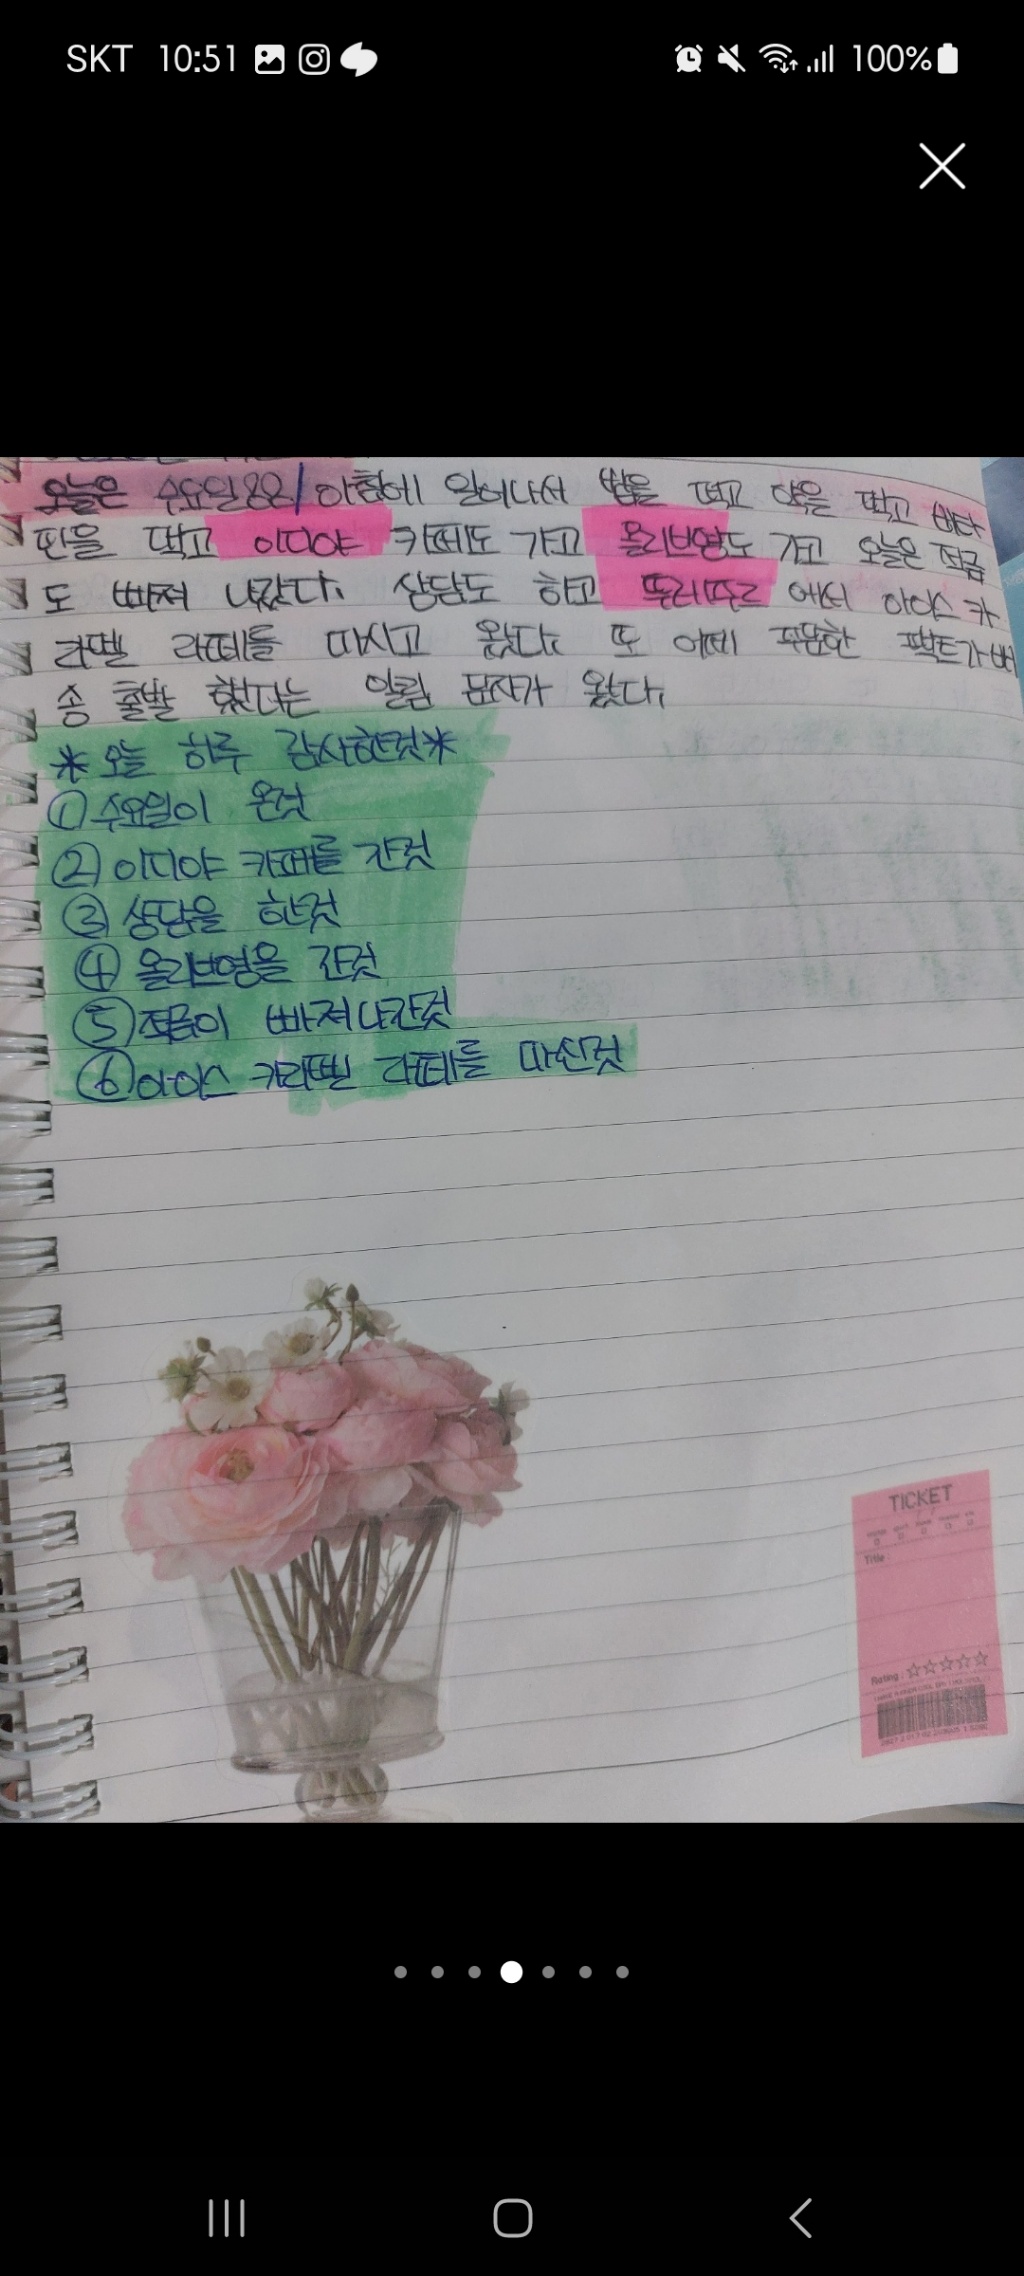 SKT 10:51 100%
오늘은 수요일 아침에 일어나서 밥을 먹고 약을 먹고 비타
민을 먹고 이디야 카페도 가고 올리브영도 가고 오늘은 적금
도 빠져 나갔다. 상담도 하고 뚜레쥬르 에서 아이스 카
라멜 라떼를 마시고 왔다. 또 어제 주문한 팩트가 배
송 출발 했다는 알림 문자가 왔다.
*오늘 하루 감사한것*
①수요일이 온것
②이디야 카페를 간것
③상담을 한것
④올리브영을 간것
⑤적금이 빠져나간것
⑥아이스 카라멜 라떼를 마신것
TICKET
Title :
Rating : ☆☆☆☆☆